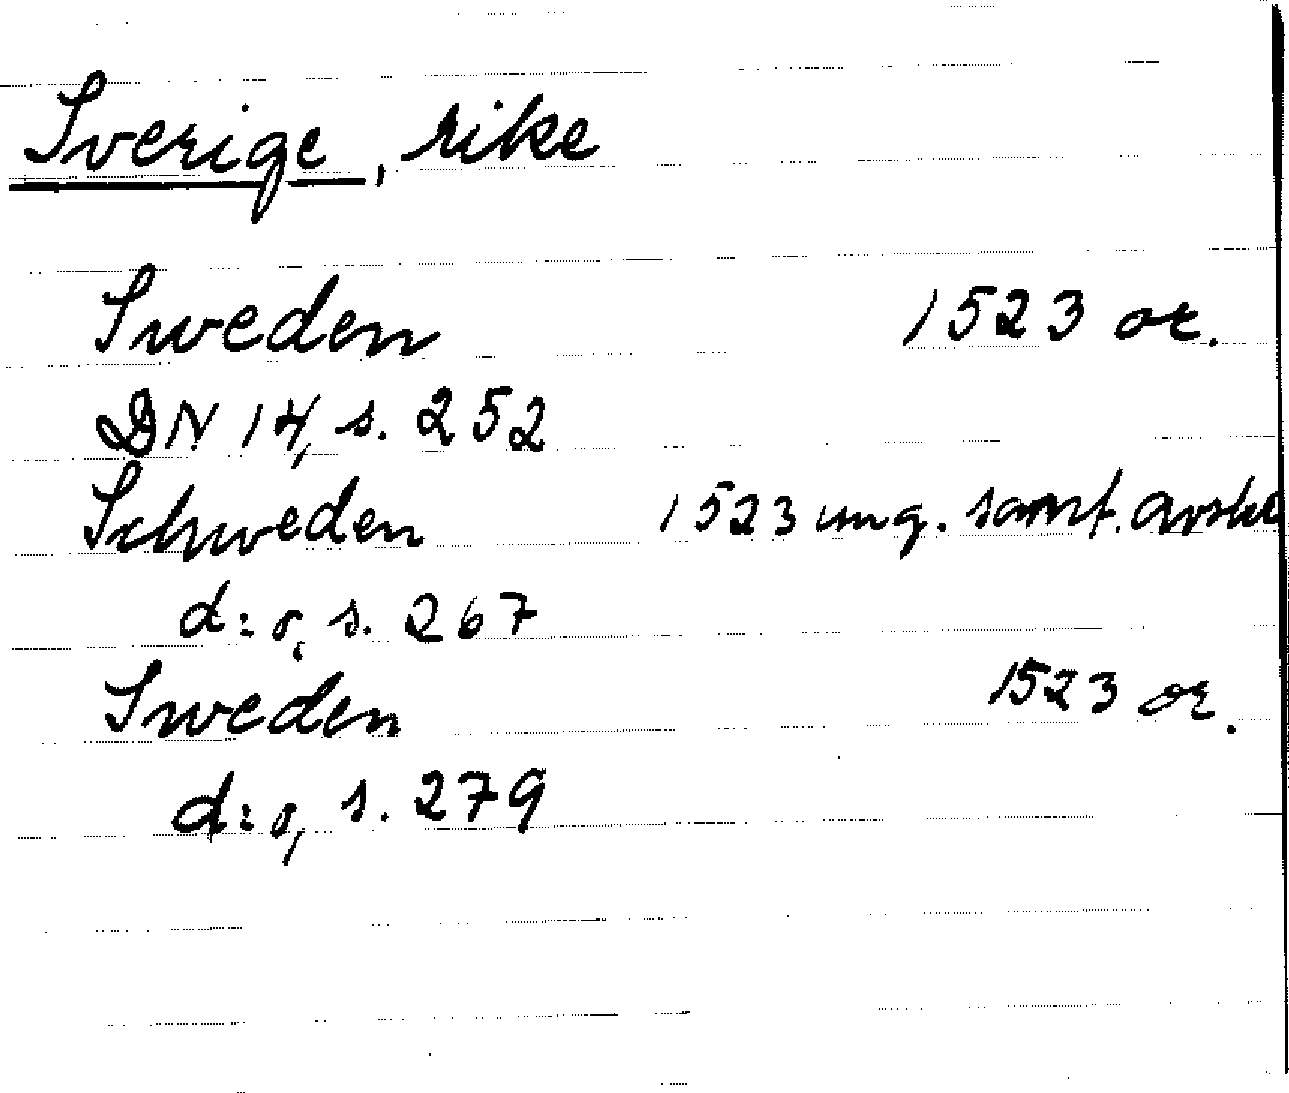 Sverige, rike
Sweden 1523 or.
DN 14, s. 252
Schweden 1523 ung. samt. avskr
d:o, s. 267
Sweden 1523 or.
d:o, s. 279